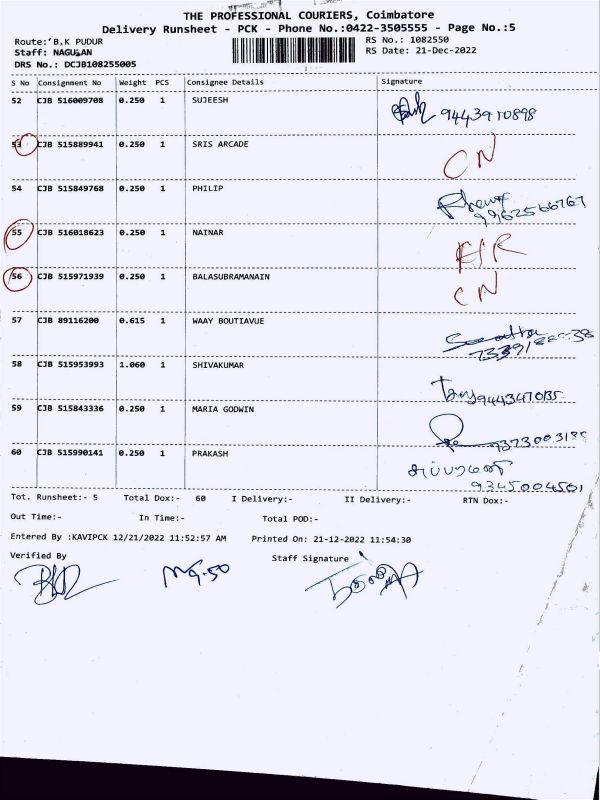 THE PROFESSIONAL COURIERS, Coimbatore
Delivery Runsheet - PCK - Phone No.:0422-3505555 - Page No.:5
Route: B.K PUDUR RS No.: 1082550
Staff: NAGULAN RS Date: 21-Dec-2022
DRS No.: DCJB108255005
S No Consignment No Weight PCS Consignee Details Signature
52 CJB 516009708 0.250 1 SUJEESH 9443910898
53 CJB 515889941 0.250 1 SRIS ARCADE CN
54 CJB 515849768 0.250 1 PHILIP
9962566767
55 CJB 516018623 0.250 1 NAINAR
56 CJB 515971939 0.250 1 BALASUBRAMANAIN CN
57 CJB 89116200 0.615 1 WAAY BOUTIAVUE
58 CJB 515953993 1.060 1 SHIVAKUMAR
59 CJB 515843336 0.250 1 MARIA GODWIN
60 CJB 515990141 0.250 1 PRAKASH
9345004501
Tot. Runsheet:- 5 Total Dox:- 60 I Delivery:- II Delivery:- RTN Dox:-
Out Time:- In Time:- Total POD:-
Entered By :KAVIPCK 12/21/2022 11:52:57 AM Printed On: 21-12-2022 11:54:30
Verified By Staff Signature